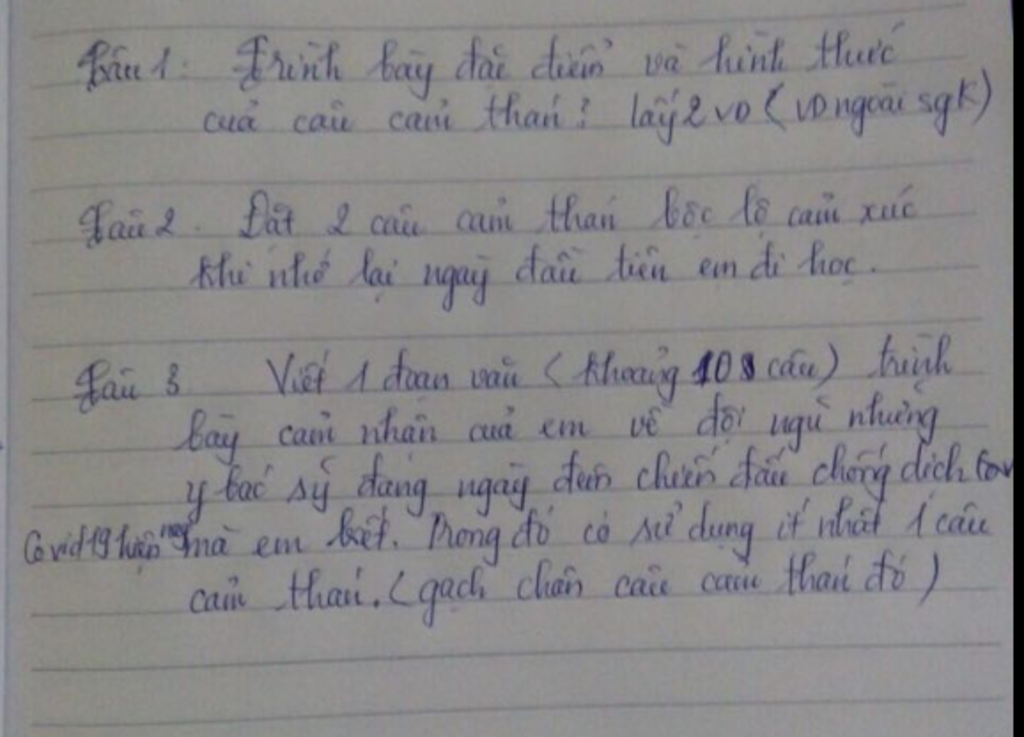 Câu 1: Trình bày đặc điểm và hình thức
của câu cảm thán? lấy 2 VD (VD ngoài sgk)
Câu 2. Đặt 2 câu cảm thán bộc lộ cảm xúc
khi nhớ lại ngày đầu tiên em đi học.
Câu 3 Viết 1 đoạn văn (khoảng 10 câu) trình
bày cảm nhận của em về đội ngũ những
y bác sỹ đang ngày đêm chiến đấu chống dịch Cov
Covid19 hiện nay mà em biết. Trong đó có sử dụng ít nhất 1 câu
cảm thán. (gạch chân câu cảm thán đó)